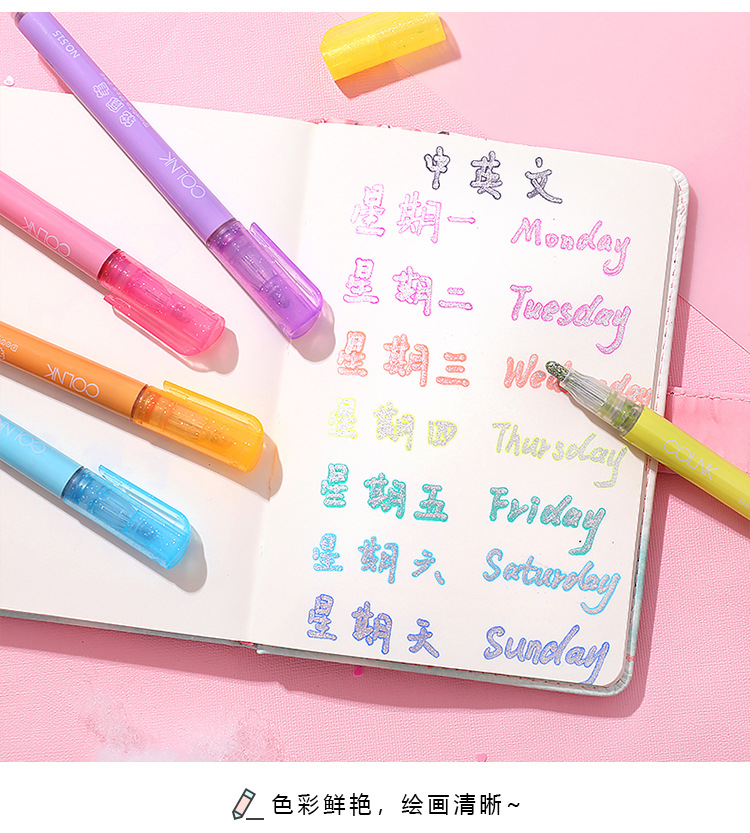 NO.515
COLNK
COLNK
COLNK
COLNK
COLNK
中英文
星期一 Monday
星期二 Tuesday
星期三 Wednesday
星期四 Thursday
星期五 Friday
星期六 Saturday
星期天 Sunday
色彩鲜艳，绘画清晰~